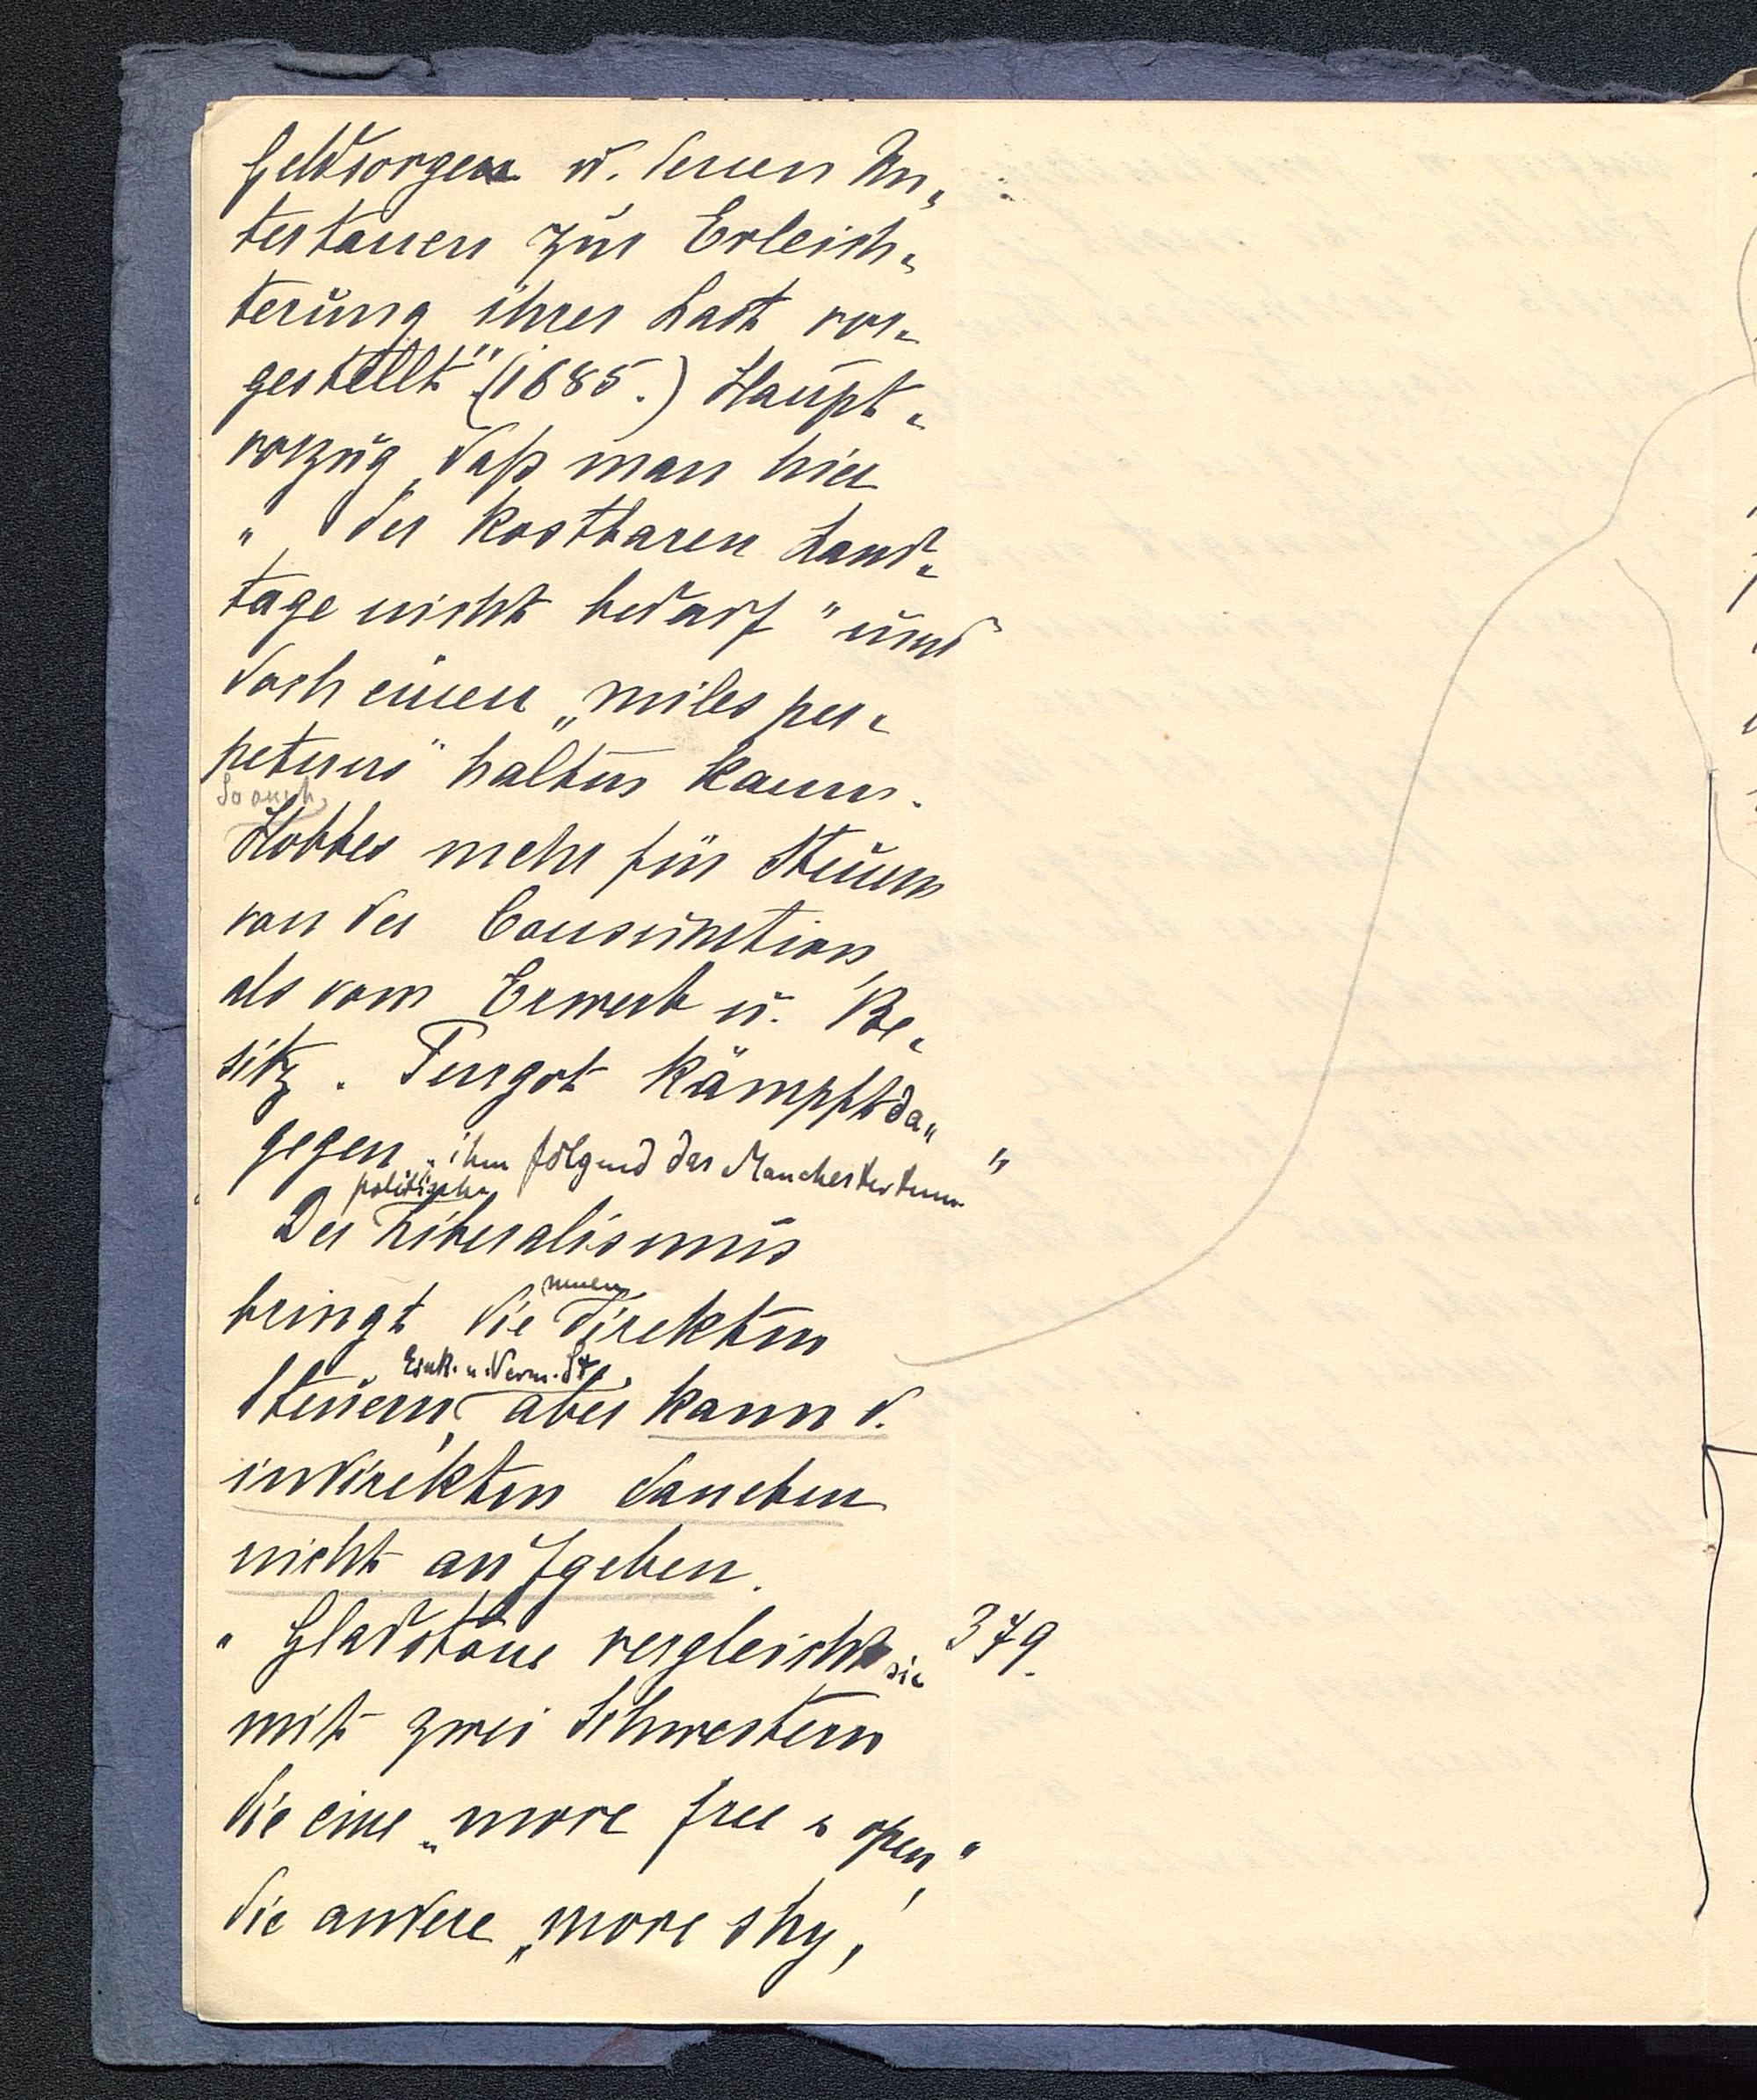 Geldsorgen u. deren Un-
tertanen zur Erleich-
terung ihrer Last vor-
gestellt" (1685.) Haupt-
vorzug, daß man hier
" der kostbaren Land-
tage nicht bedarf" und
doch einen "miles per-
petuus" halten kann.
So auch
Hobbes mehr für Steuern
von der Consumtion,
als vom Erwerb u. Be-
sitz. Turgot kämpft da-
gegen, ihm folgend das Manchestertum
politische
Der Liberalismus
neuen
bringt die direkten
Eink. u. Verm. St.,
Steuern, aber kann d.
indirekten daneben
nicht aufgeben.
" Gladstone vergleicht sie 379.
mit zwei Schwestern
die eine "more free & open,"
die andere "more shy,